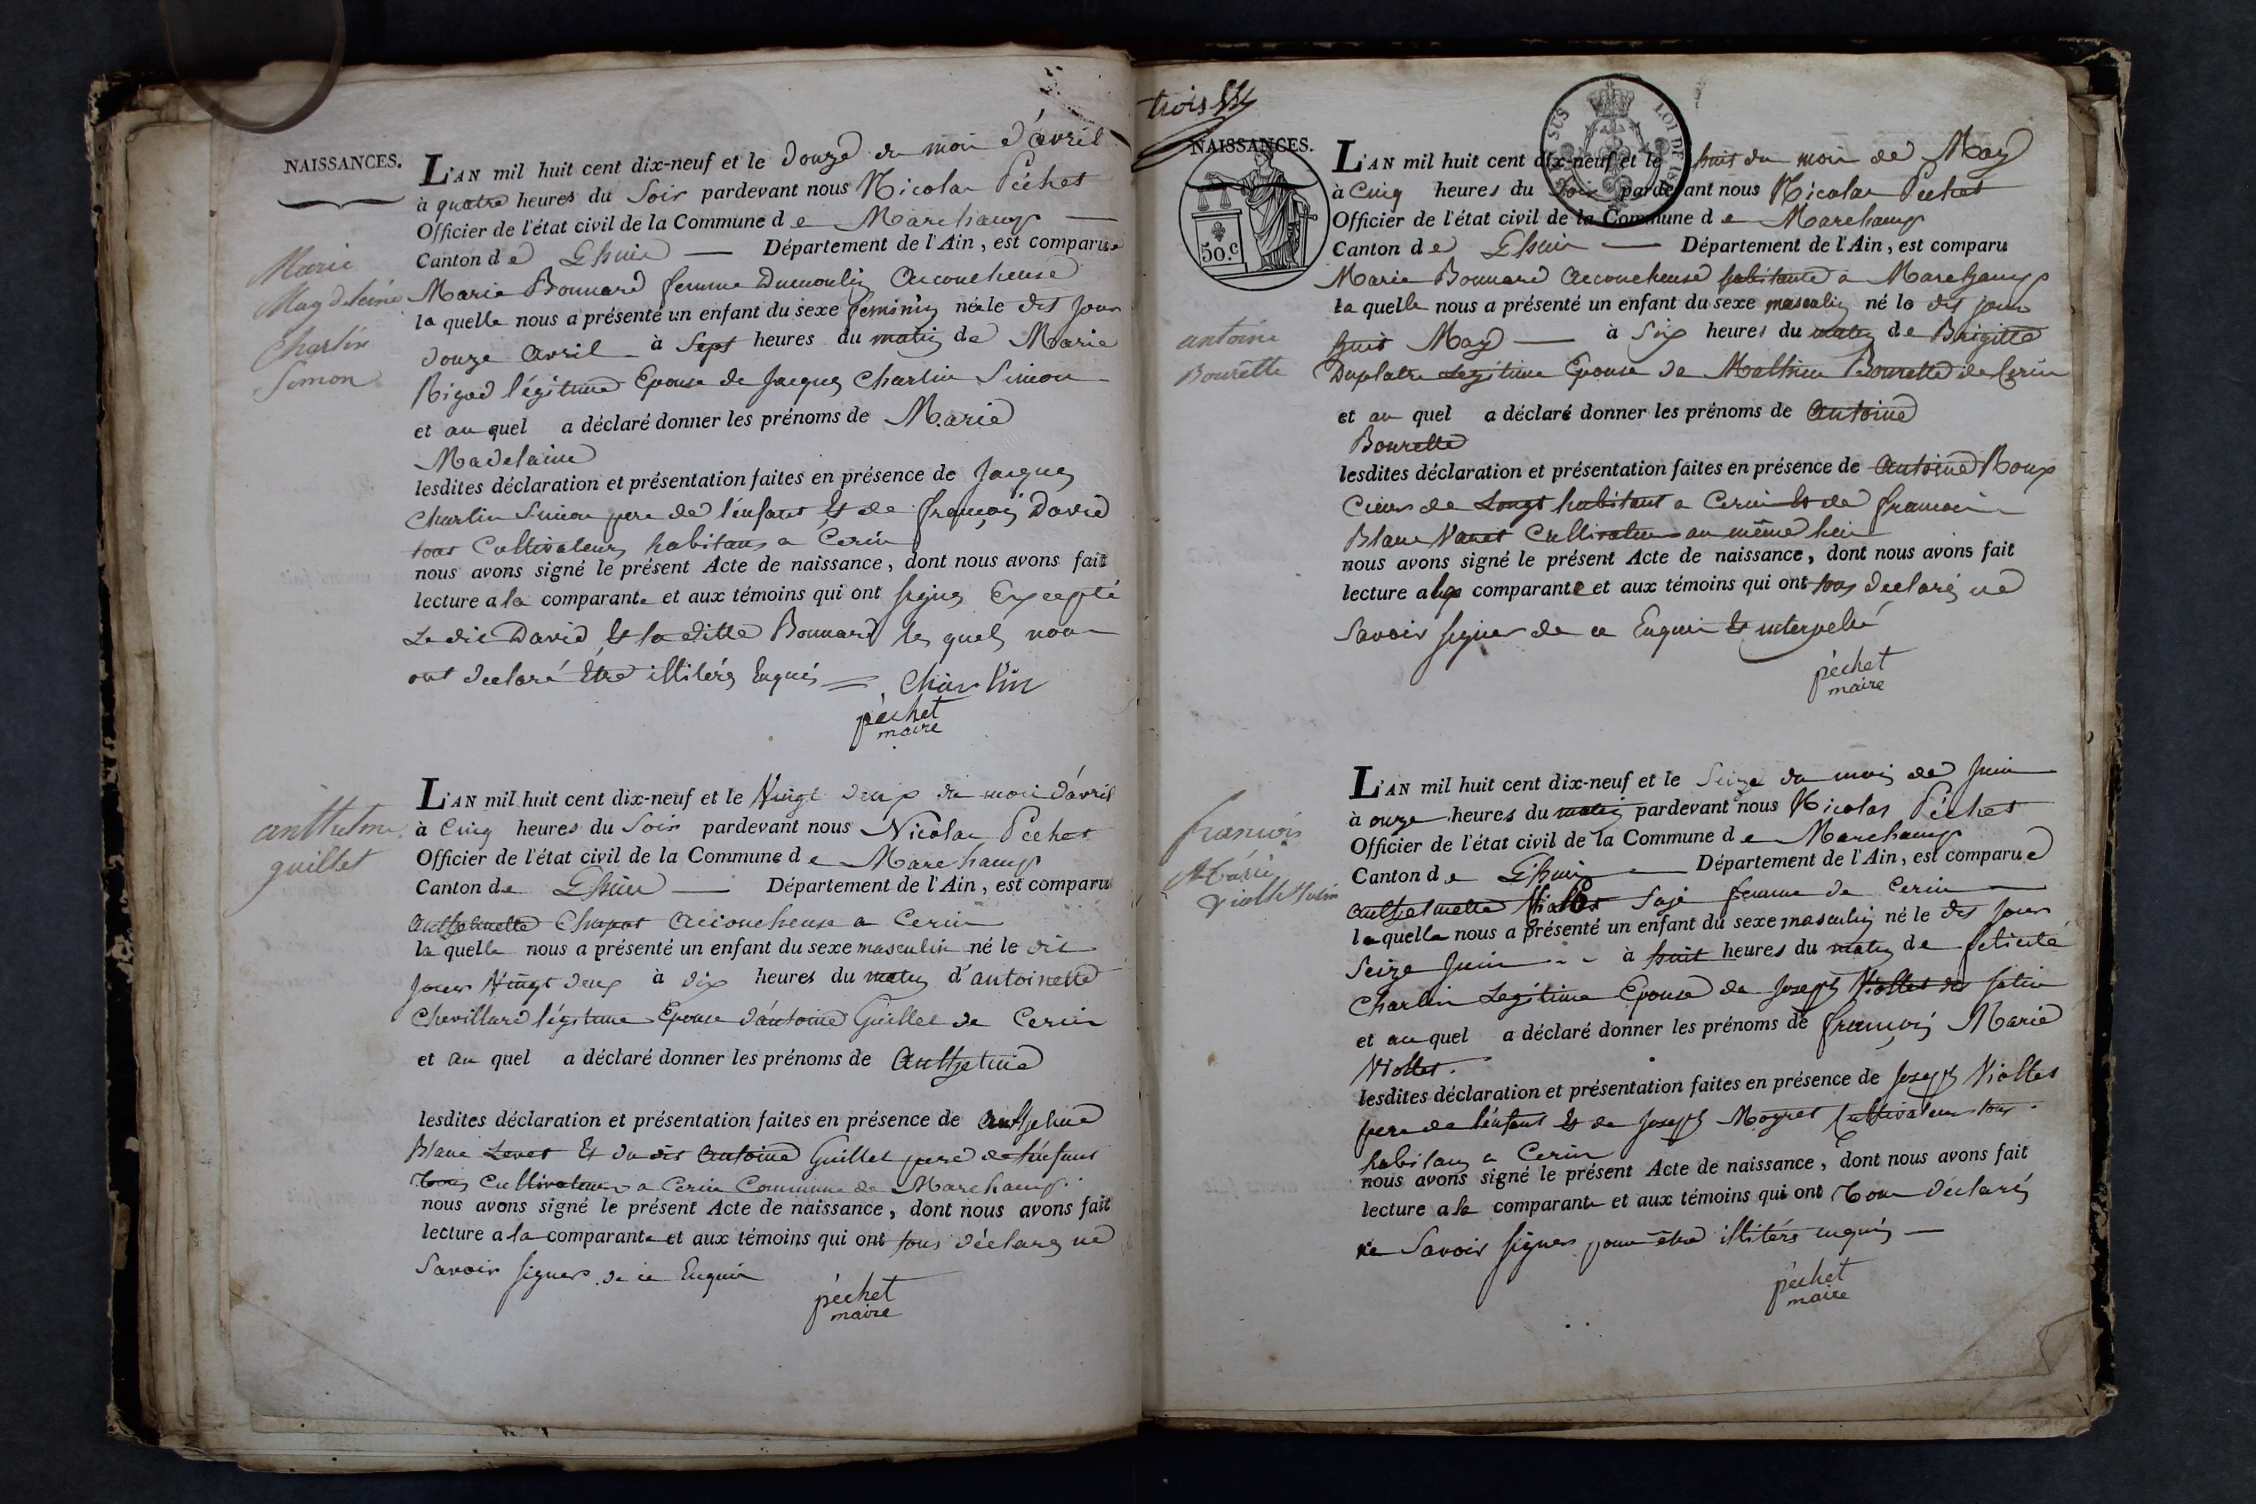 NAISSANCES.
Marie
Magdeleine
Charlin
Simon
L'AN mil huit cent dix-neuf et le Douze du mois d'avril
à quatre heures du Soir pardevant nous Nicolas Péchet
Officier de l'état civil de la Commune de Marchamp
Canton de Lhuis Département de l'Ain, est comparue
Marie Bonnard femme Dumoulin Accoucheuse
la quelle nous a présenté un enfant du sexe féminin née le dis Jour
douze avril à Sept heures du matin de Marie
Rigod légitime Epouse de Jacques Charlin Simon
et au quel a déclaré donner les prénoms de Marie
Madelaine
lesdites déclaration et présentation faites en présence de Jacques
Charlin Simon pere de l'enfant Et de françois David
tous Cultivateurs habitans a Cerin
nous avons signé le présent Acte de naissance, dont nous avons fait
lecture a la comparante et aux témoins qui ont signés Excepté
Le dit David Et la ditte Bonnard les quels nous
ont declaré Etre illiterés Enquis Charlin
péchet
maire
anthelme
guillet
L'AN mil huit cent dix-neuf et le Vingt deux du mois d'avril
à Cinq heures du Soir pardevant nous Nicolas Péchet
Officier de l'état civil de la Commune de Marchamp
Canton de Lhuis Département de l'Ain, est comparu
Anthelmette Chapot Accoucheuse a Cerin
la quelle nous a présenté un enfant du sexe masculin né le dit
Jour Vingt deux à dix heures du matin d'antoinette
Chevillard légitime Epouse d'antoine Guillet de Cerin
et au quel a déclaré donner les prénoms de Anthelme
lesdites déclaration et présentation faites en présence de Anthelme
Blanc Levet Et du dit Antoine Guillet pere de l'enfant
tous Cultivateurs a Cerin Commune de Marchamp
nous avons signé le présent Acte de naissance, dont nous avons fait
lecture a la comparante et aux témoins qui ont tous déclarés ne
Savoir signer de ce Enquis
péchet
maire
trois
NAISSANCES.
50.c
LOI DE
antoine
Bourette
L'AN mil huit cent dix-neuf et le huit du mois de May
à Cinq heures du Soir pardevant nous Nicolas Péchet
Officier de l'état civil de la Commune de Marchamp
Canton de Lhuis Département de l'Ain, est comparu
Marie Bonnard Accoucheuse habitante a Marchamp
la quelle nous a présenté un enfant du sexe masculin né le dis jour
huit May à Six heures du matin de Brigitte
Duplatre Legitime Epouse de Mathieu Bourette de Cerin
et au quel a déclaré donner les prénoms de Antoine
Bourette
lesdites déclaration et présentation faites en présence de Antoine Roux
habitant a Cerin Et de francois
Blanc Cultivateur au même lieu
nous avons signé le présent Acte de naissance, dont nous avons fait
lecture a la comparante et aux témoins qui ont tous declarés ne
Savoir signer de ce Enquis Et interpellé
péchet
maire
francois
Marie
L'AN mil huit cent dix-neuf et le Seize du mois de Juin
à onze heures du matin pardevant nous Nicolas Péchet
Officier de l'état civil de la Commune de Marchamp
Canton de Lhuis Département de l'Ain, est comparue
Anthelmette Sage femme de Cerin
la quelle nous a présenté un enfant du sexe masculin né le dis Jour
Seize Juin à huit heures du matin de felicité
Charlin Legitime Epouse de Joseph Viollet dit
et au quel a déclaré donner les prénoms de françois Marie
Viollet.
lesdites déclaration et présentation faites en présence de Joseph Viollet
pere de l'enfant Et de Joseph Moyret Cultivateurs tous
habitans a Cerin
nous avons signé le présent Acte de naissance, dont nous avons fait
lecture a la comparante et aux témoins qui ont Tous déclarés
ne Savoir signer pour être illiterés enquis
péchet
maire